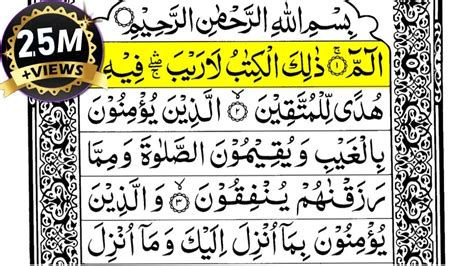 2.5M
+VIEWS
بِسْمِ اللهِ الرَّحْمٰنِ الرَّحِيْمِ
الٓمّٓ ۚ﴿۱﴾ ذٰلِكَ الْكِتٰبُ لَا رَيْبَ ۛۖ فِيْهِ
هُدًى لِّلْمُتَّقِيْنَ ﴿۲﴾ الَّذِيْنَ يُؤْمِنُوْنَ
بِالْغَيْبِ وَيُقِيْمُوْنَ الصَّلٰوةَ وَمِمَّا
رَزَقْنٰهُمْ يُنْفِقُوْنَ ﴿۳﴾ وَالَّذِيْنَ
يُؤْمِنُوْنَ بِمَآ اُنْزِلَ اِلَيْكَ وَمَآ اُنْزِلَ